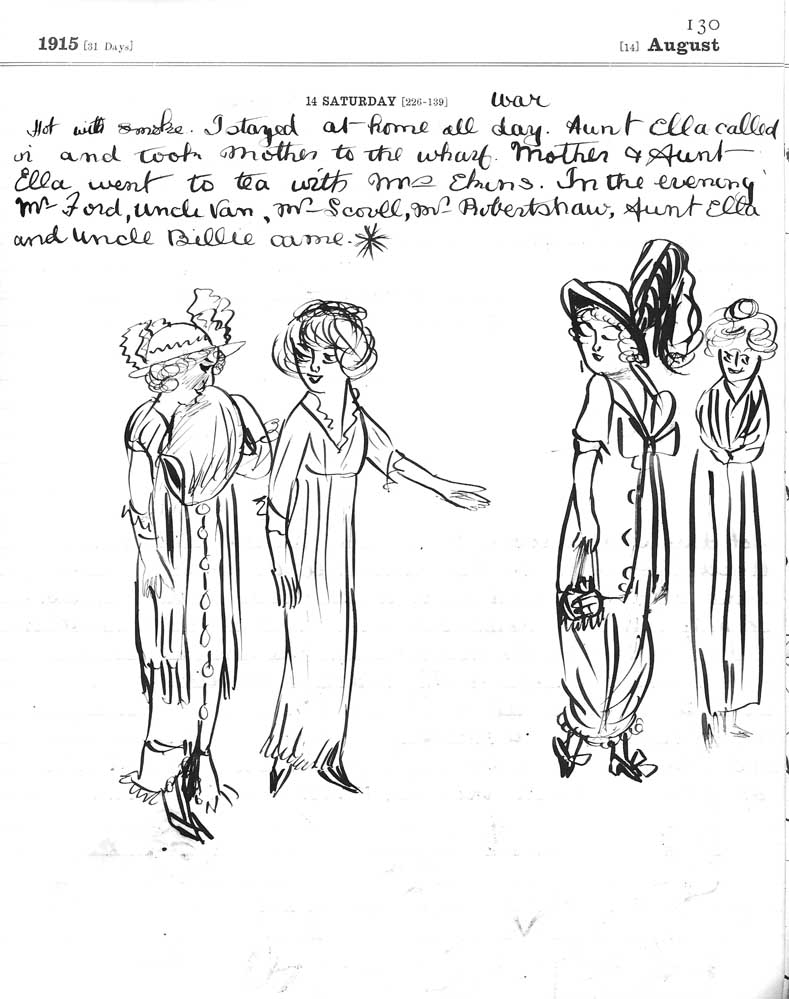 130
1915 [31 Days] [14] August
14 SATURDAY [226-139] war
Hot with smoke. I stayed at home all day. Aunt Ella called
in and took Mother to the wharf. Mother & Aunt
Ella went to tea with Mrs Ekins. In the evening
Mr Ford, Uncle Van, Mr Scovell, Mr Robertshaw, Aunt Ella
and Uncle Billie came.